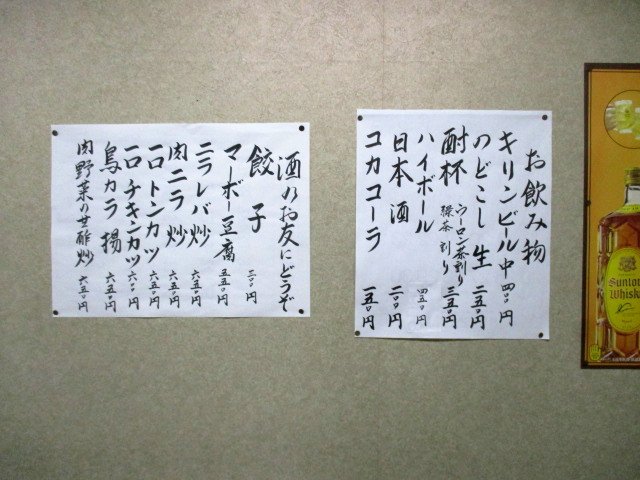 お飲み物
キリンビール中 四〇〇円
のどごし生 二五〇円
酎杯 ウーロン茶割り 緑茶割り 三五〇円
ハイボール 四五〇円
日本酒 二〇〇円
コカコーラ 一五〇円
酒のお友にどうぞ
餃子 二〇〇円
マーボー豆腐 五五〇円
ニラレバ炒 六五〇円
肉ニラ炒 六五〇円
一口トンカツ 六〇〇円
一口チキンカツ 六〇〇円
鳥カラ揚 六五〇円
肉野菜の甘酢炒 六五〇円
Suntor
Whisk